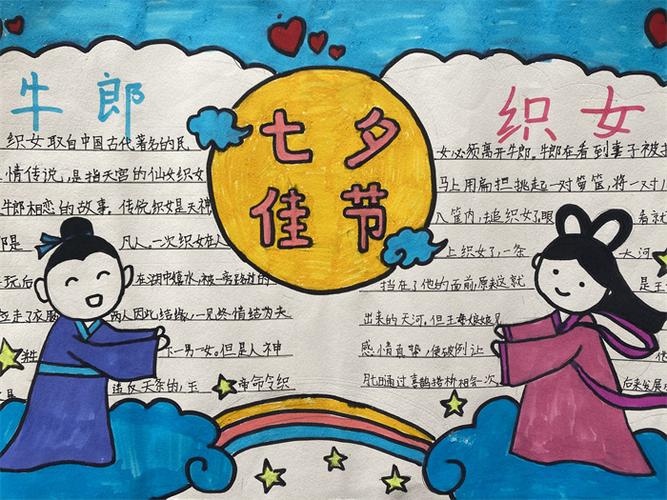 牛郎
七夕
佳节
织女
织女取自中国古代著名的民
情传说,是指天宫的仙女织女
牛郎相恋的故事,传说织女是天神
凡人,一次织女在人
玩后
在湖中嬉水,被一旁路过的
走了衣
两人因此结缘,一见然情结为夫
下一男一女。但是人神
违反天条的,王
帝命令织
女必须离开牛郎,牛郎在看到妻子被
马上用扁担挑起一对箩筐,将一对
八筐内,追织女了眼
看就
上织女了,一条
大河
挡在了他的面前,原来这就
是王
出来的天河,但王母娘娘见
他
感情真挚,便破例让
肚日通过喜鹊搭桥相会一次,
后来发展